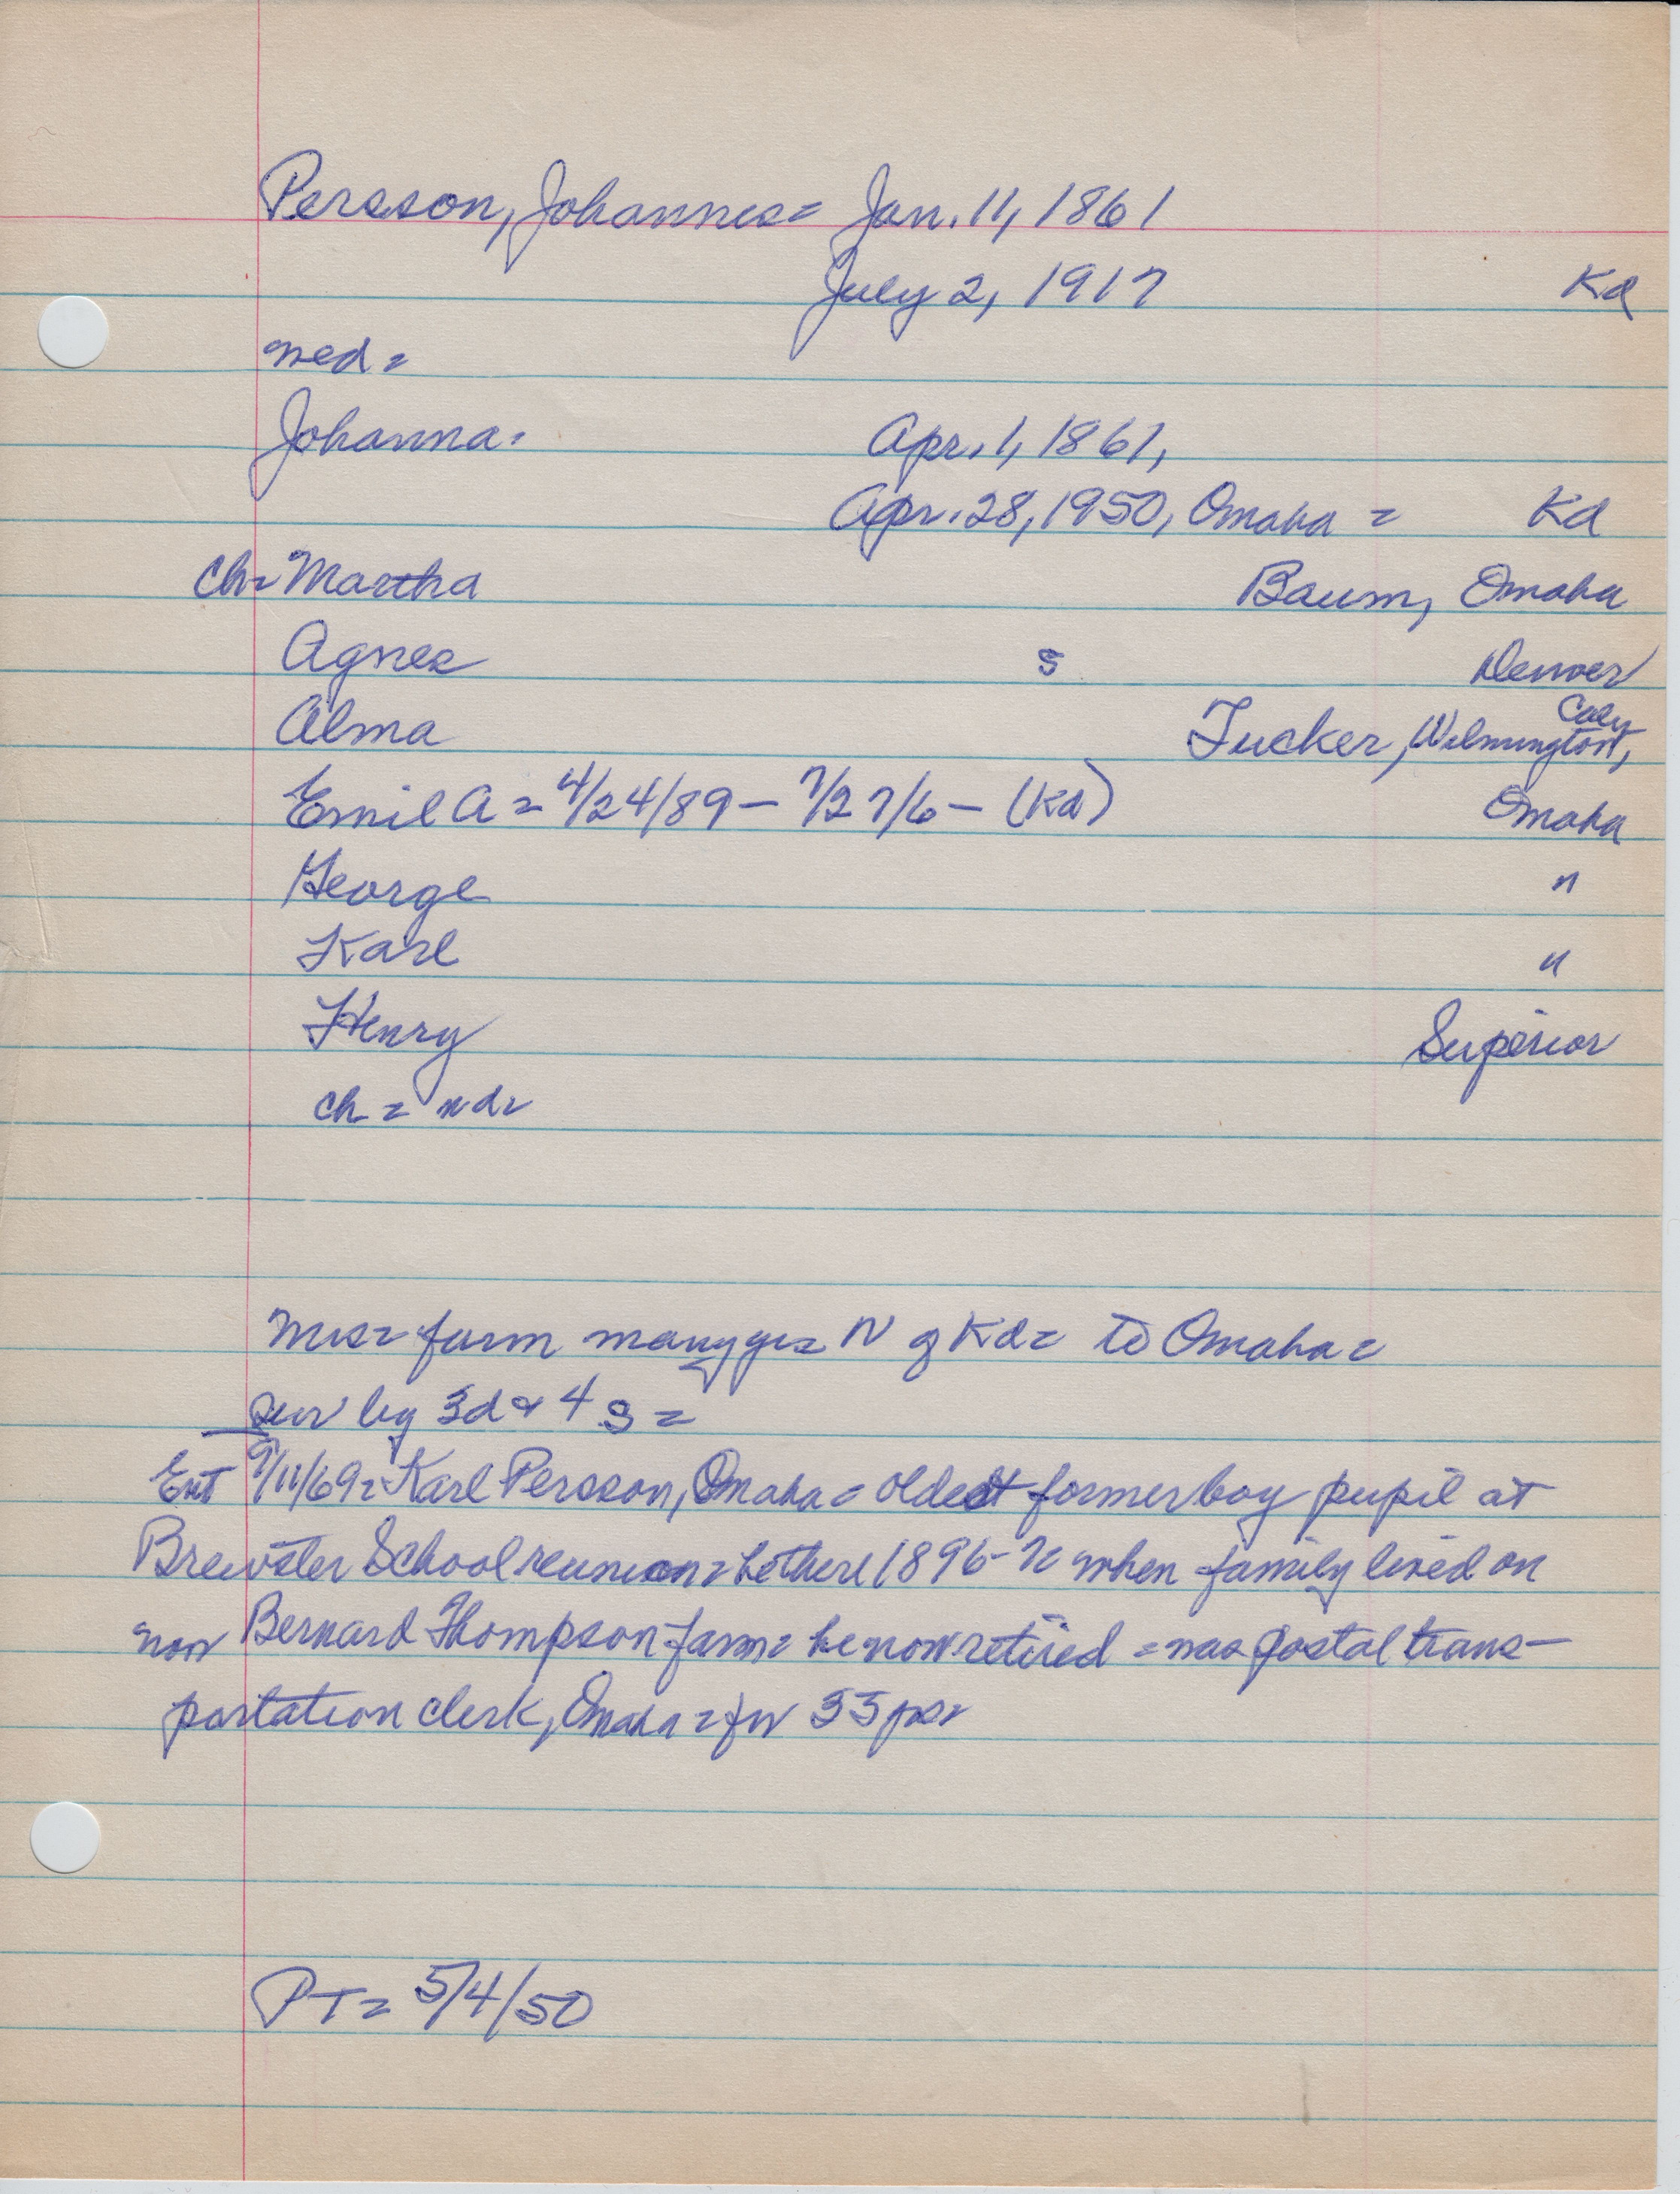 Persson, Johannes = Jan. 11, 1861
July 2, 1917 Kd
wed =
Johanna = Apr. 1, 1861,
Apr. 28, 1950, Omaha = Kd
Ch = Martha Baum, Omaha
Agnes s Denver
Alma Tucker, Wilmington, Calif
Emil A = 4/24/89 - 7/27/6 - (Kd) Omaha
George "
Karl "
Henry Superior
ch = nd =
Mrs = farm many yrs N of Kd = to Omaha =
sur by 3d & 4 s =
Ent 9/11/69 = Karl Persson, Omaha = oldest former boy pupil at
Brewster School reunion = he there 1896- when family lived on
now Bernard Thompson farm = he now retired = was postal trans-
portation clerk, Omaha = for 35 yrs
PT = 5/4/50